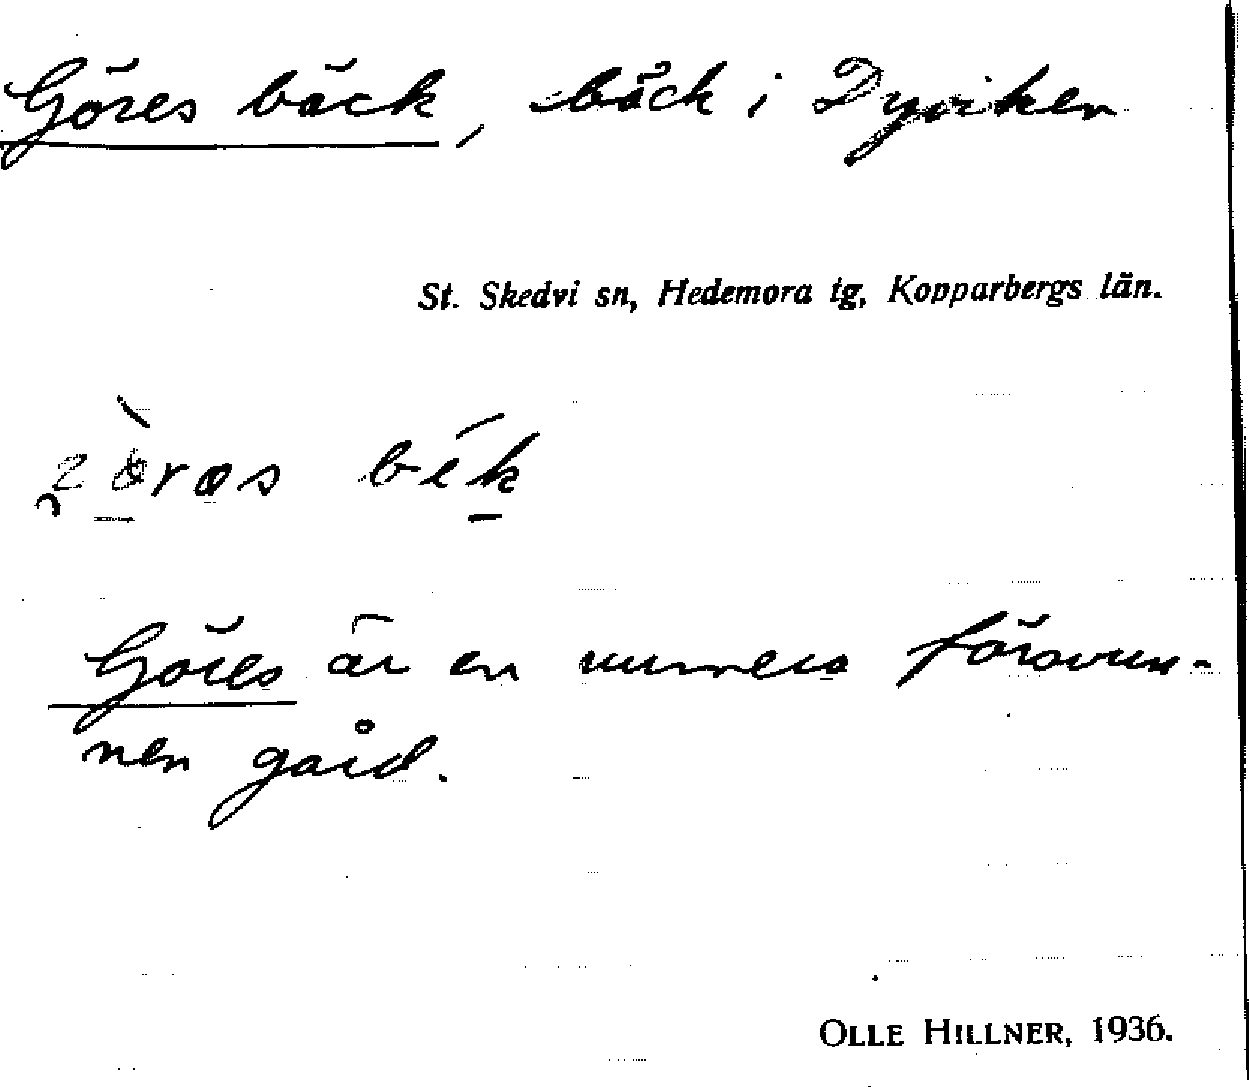 Göres bäck, bäck i Dyviken
St. Skedvi sn, Hedemora tg, Kopparbergs län.
bék
Göres är en numera försvun-
nen gård.
OLLE HILLNER, 1936.